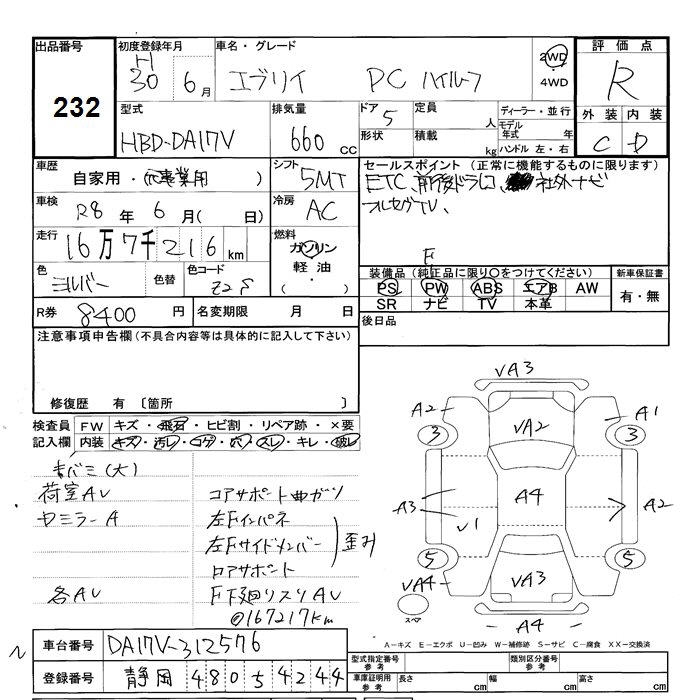 出品番号
232
初度登録年月
H
30 6月
車名・グレード
エブリイ PC ハイルーフ
2WD
・
4WD
評価点
R
外装 内装
C D
型式
HBD-DA17V
排気量
660 cc
ドア 5
形状
定員 人
積載 kg
ディーラー・並行
モデル年式 年
ハンドル 左・右
車歴
自家用・(元事業用 )
シフト
5MT
セールスポイント (正常に機能するものに限ります)
ETC、前後ドラレコ、社外ナビ
フルセグTV、
車検
R8 年 6 月( 日)
冷房
AC
走行
16万7千216km
燃料
ガソリン
軽油・
( )
色
シルバー
色替
色コード
Z2S
F
装備品 (純正品に限り○をつけてください)
PS PW ABS エアB AW
SR ナビ TV 本革
新車保証書
有・無
R券 8400 円
名変期限 月 日
後日品
注意事項申告欄 (不具合内容等は具体的に記入して下さい)
修復歴 有 〔箇所
検査員記入欄
FW キズ・飛石・ヒビ割・リペア跡・×要
内装 キズ・汚レ・コゲ・穴・スレ・キレ・破レ
キバミ(大)
荷室AU
ヤミラーA
各AU
コアサポート曲ガリ
左Fインパネ
左Fサイドメンバー
ロアサポート
歪み
F下廻リスリAU
@167217km
VA3
A2
A1
3
VA2
3
A3
A4
A2
V1
5
5
VA4
VA3
スペア
A4
A-キズ E-エクボ U-凹み W-補修跡 S-サビ C-腐食 XX-交換済
車台番号 DA17V-312576
登録番号 静岡 480 5 4244
型式指定番号
参考
類別区分番号
参考
車庫証明用
参考
長さ cm
幅 cm
高さ cm